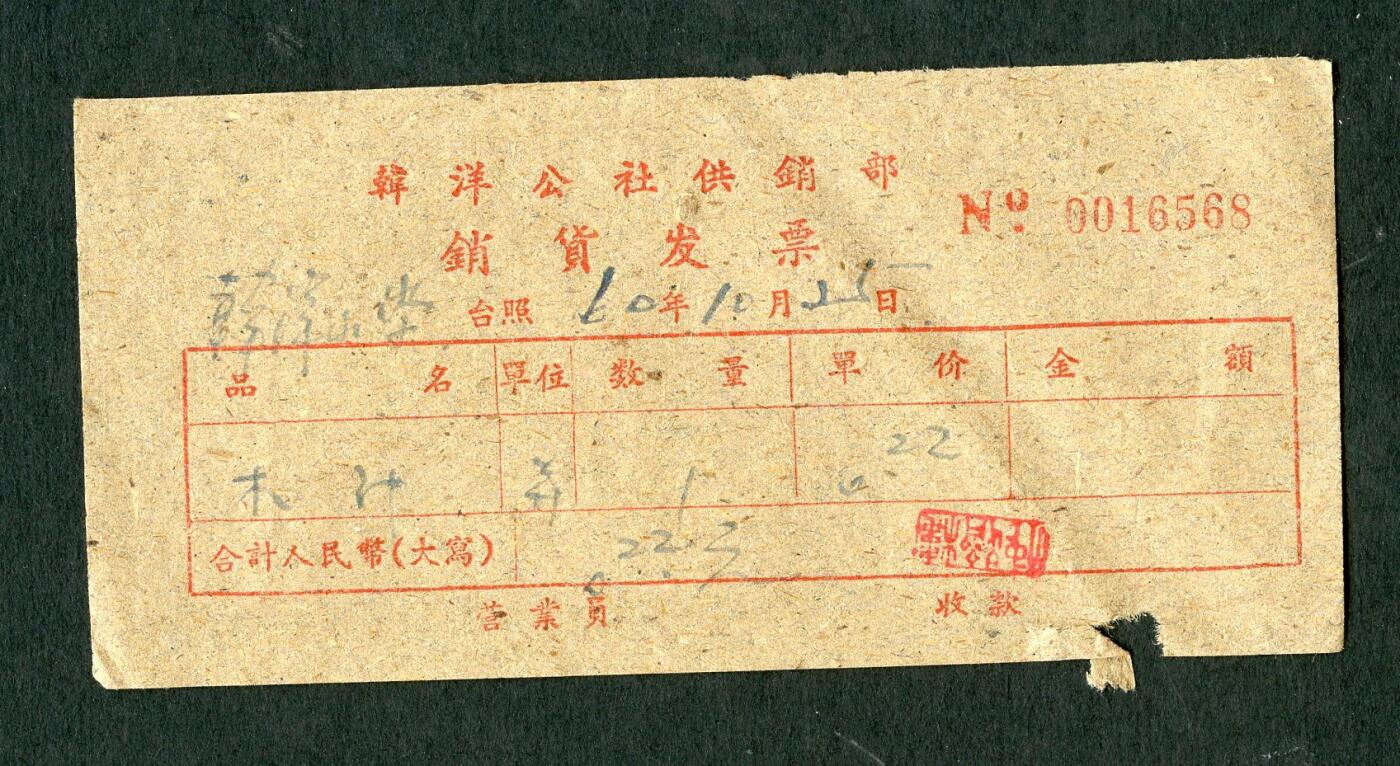 韓洋公社供銷部
銷貨发票
№ 0016568
韓洋小学 台照 60年10月25日
品名 單位 数量 單价 金額
木 1 0.22
合計人民幣(大寫) 0.22元
营業員 收款